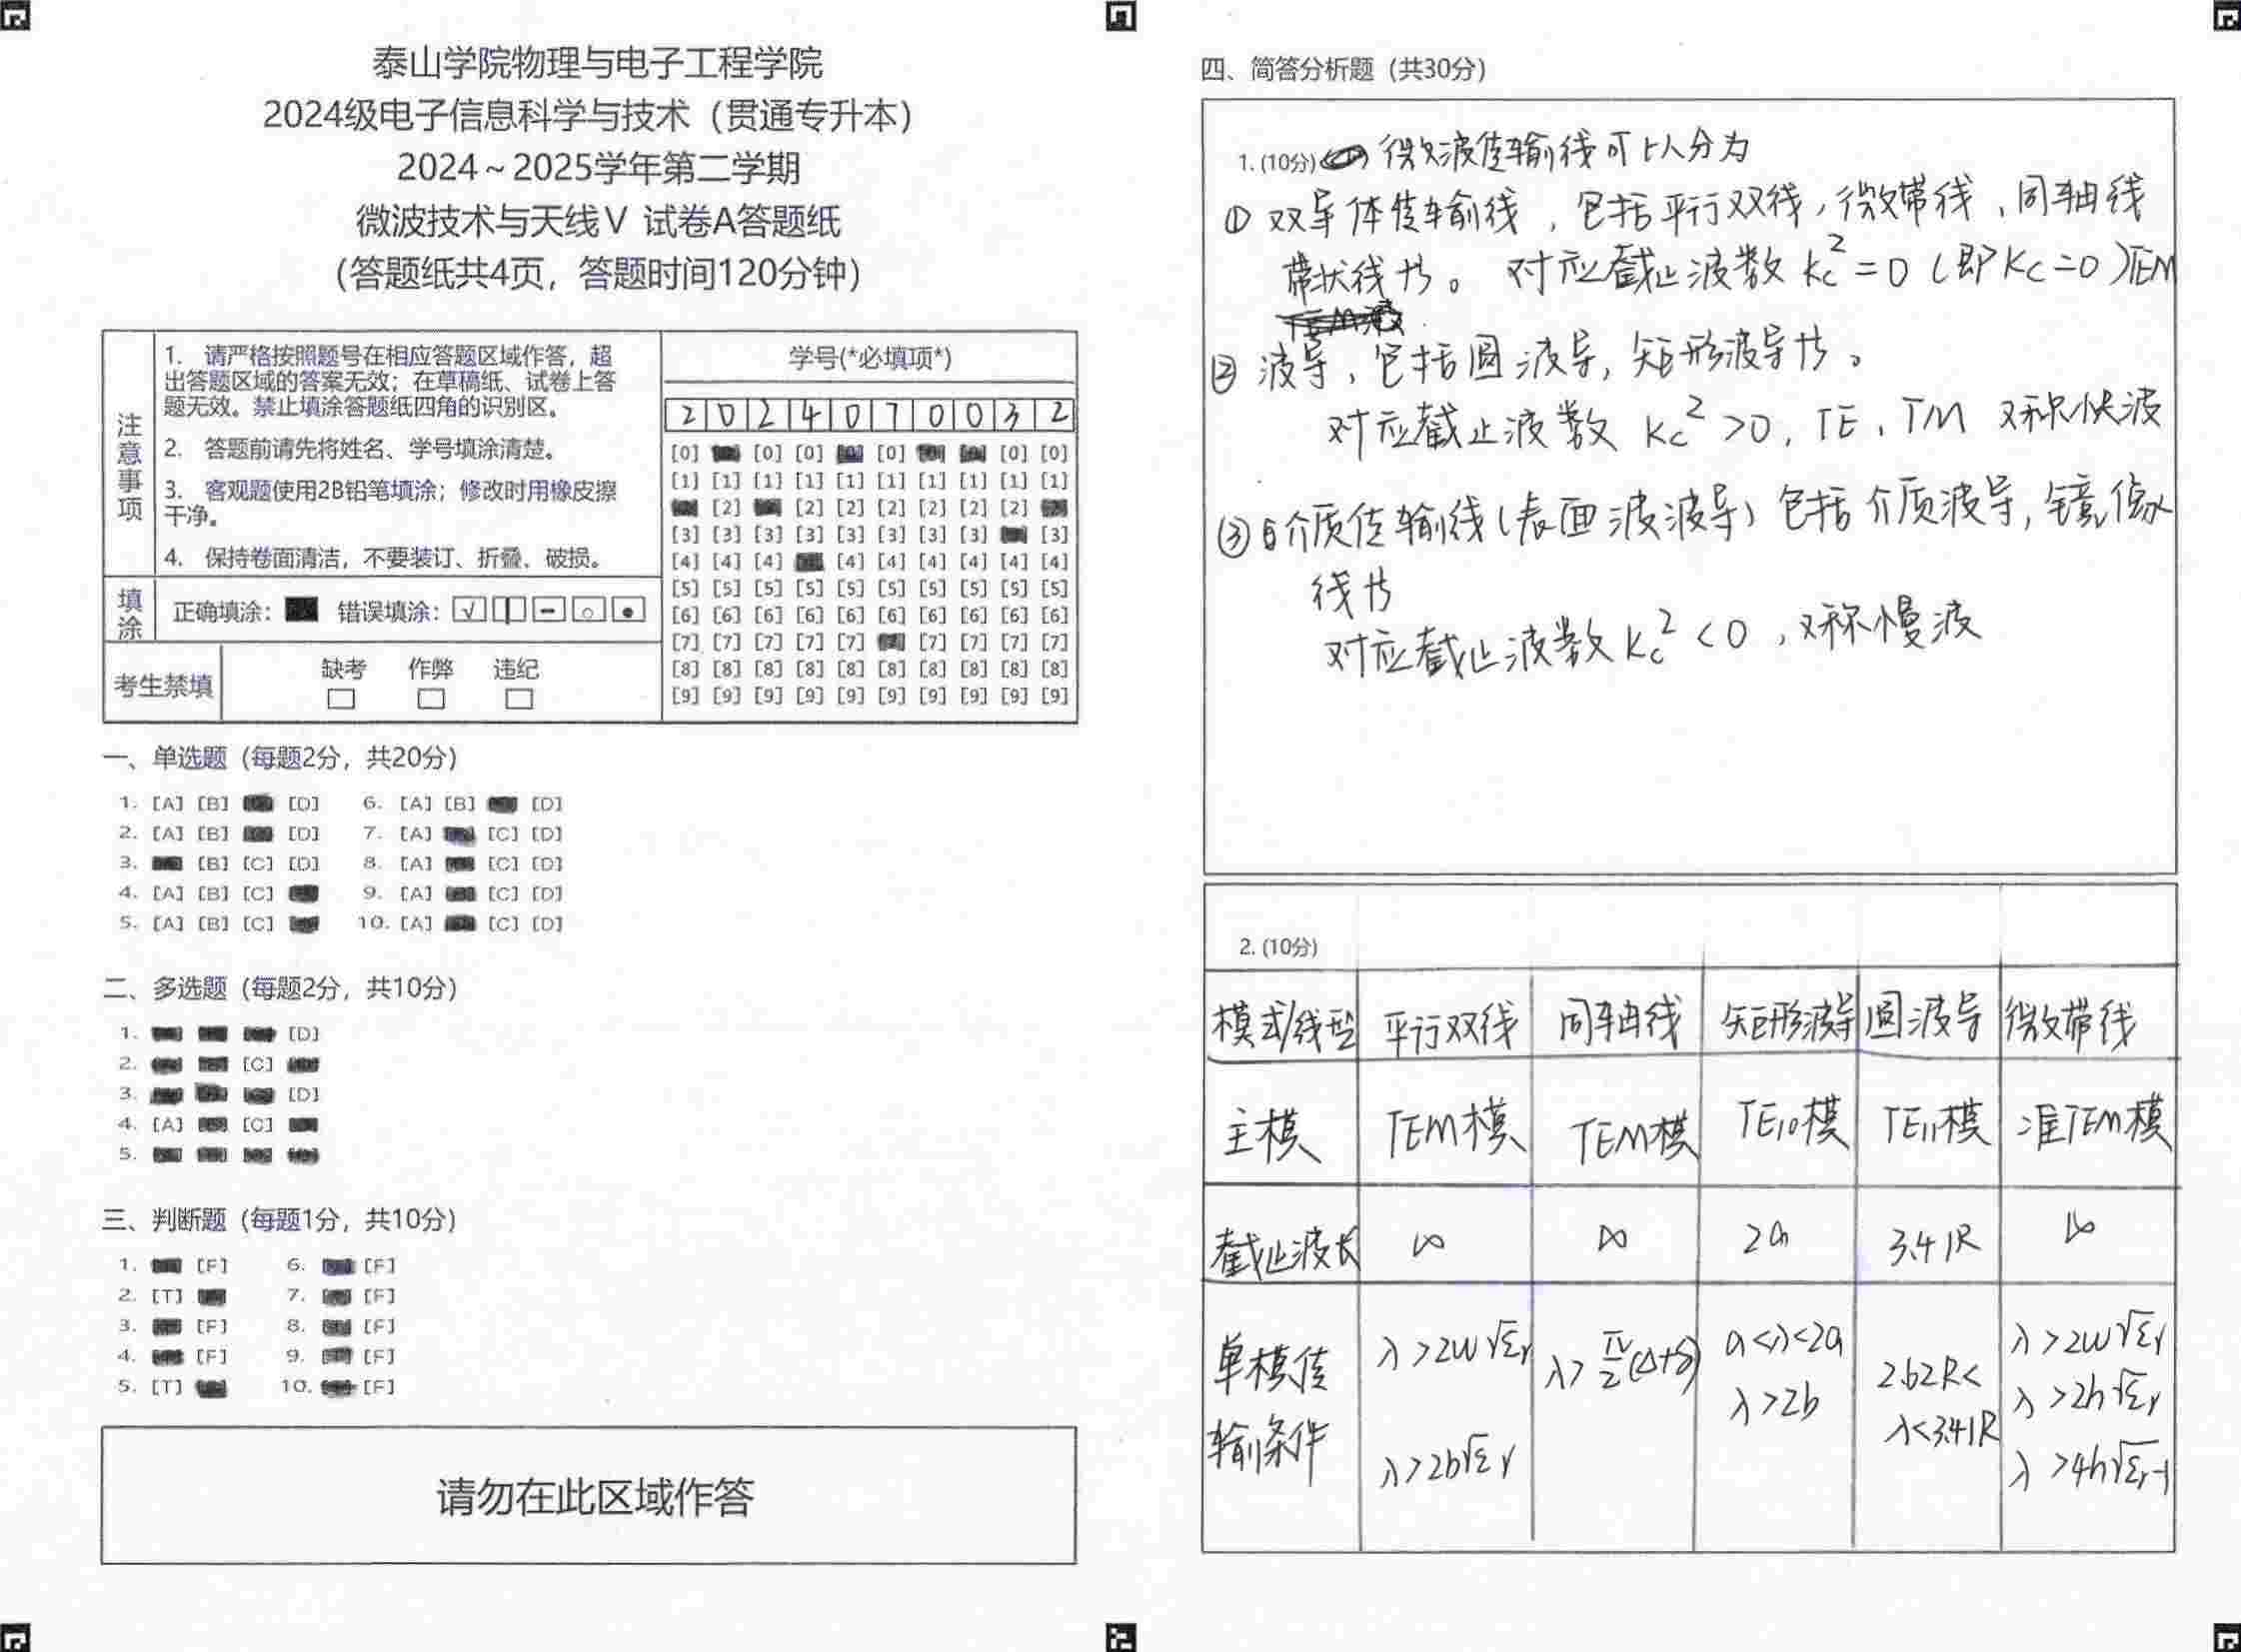 泰山学院物理与电子工程学院
2024级电子信息科学与技术（贯通专升本）
2024～2025学年第二学期
微波技术与天线Ⅴ 试卷A答题纸
（答题纸共4页，答题时间120分钟）
注意事项
1. 请严格按照题号在相应答题区域作答，超
出答题区域的答案无效；在草稿纸、试卷上答
题无效。禁止填涂答题纸四角的识别区。
2. 答题前请先将姓名、学号填涂清楚。
3. 客观题使用2B铅笔填涂；修改时用橡皮擦
干净。
4. 保持卷面清洁，不要装订、折叠、破损。
填涂
正确填涂： 错误填涂：
考生禁填
缺考 作弊 违纪
学号(*必填项*)
2 0 2 4 0 7 0 0 3 2
[0] [0] [0] [0] [0] [0] [0]
[1] [1] [1] [1] [1] [1] [1] [1] [1] [1]
[2] [2] [2] [2] [2] [2] [2]
[3] [3] [3] [3] [3] [3] [3] [3] [3]
[4] [4] [4] [4] [4] [4] [4] [4] [4]
[5] [5] [5] [5] [5] [5] [5] [5] [5] [5]
[6] [6] [6] [6] [6] [6] [6] [6] [6] [6]
[7] [7] [7] [7] [7] [7] [7] [7] [7]
[8] [8] [8] [8] [8] [8] [8] [8] [8] [8]
[9] [9] [9] [9] [9] [9] [9] [9] [9] [9]
一、单选题（每题2分，共20分）
1. [A] [B] [D] 6. [A] [B] [D]
2. [A] [B] [D] 7. [A] [C] [D]
3. [B] [C] [D] 8. [A] [C] [D]
4. [A] [B] [C] 9. [A] [C] [D]
5. [A] [B] [C] 10. [A] [C] [D]
二、多选题（每题2分，共10分）
1. [D]
2. [C]
3. [D]
4. [A] [C]
5.
三、判断题（每题1分，共10分）
1. [F] 6. [F]
2. [T] 7. [F]
3. [F] 8. [F]
4. [F] 9. [F]
5. [T] 10. [F]
请勿在此区域作答
四、简答分析题（共30分）
1. (10分) 微波传输线可以分为
① 双导体传输线，包括平行双线，微带线，同轴线
带状线等。对应截止波数 Kc²=0 (即Kc=0)TEM
② 波导，包括圆波导，矩形波导等。
对应截止波数 Kc²>0，TE、TM 又称快波
③ 介质传输线(表面波波导) 包括介质波导，镜像
线等
对应截止波数 Kc²<0，又称慢波
2. (10分)
模式/线型 平行双线 同轴线 矩形波导 圆波导 微带线
主模 TEM模 TEM模 TE10模 TE11模 准TEM模
截止波长 ∞ ∞ 2a 3.41R ∞
单模传输条件 λ>2W√εr λ>2b√εr λ>π/2(D+d) a<λ<2a λ>2b 2.62R<λ<3.41R λ>2W√εr λ>2h√εr λ>4h√εr-1